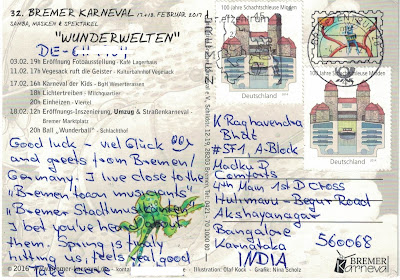 32. BREMER KARNEVAL 17.+18. FEBRUAR 2017
SAMBA, MASKEN & SPEKTAKEL
"WUNDERWELTEN"
03.02. 19h Eröffnung Fotoausstellung - Kafé Lagerhaus
11.02. 17h Vegesack ruft die Geister - Kulturbahnhof Vegesack
17.02. 16h Karneval der Kids - BgH Weserterrassen
18h Lichtertreiben - Milchquartier
20h Einheizen - Viertel
18.02. 12h Eröffnungs-Inszenierung, Umzug & Straßenkarneval -
Bremer Marktplatz
20h Ball "Wunderball" - Schlachthof
Good luck - viel Glück
and greets from Bremen/
Germany. I live close to the
"Bremen town musicants"
"Bremer Stadtmusikanten"
I bet you've heard
them. Spring is finally
hitting us, feels real good
100 Jahre Schachtschleuse Minden
Deutschland
100 Jahre Schachtschleuse Minden
Deutschland
K Raghavendra
Bhat
#SF1, A. Block
Madku D
Comforts
4th Main 1st D Cross
Hulimavu - Begur Road
Akshayanagar
Bangalore
560068
Karnataka
INDIA
© 2016
Illustration: Olaf Kock - Grafik: Nina Scholz
BREMER
Karneval